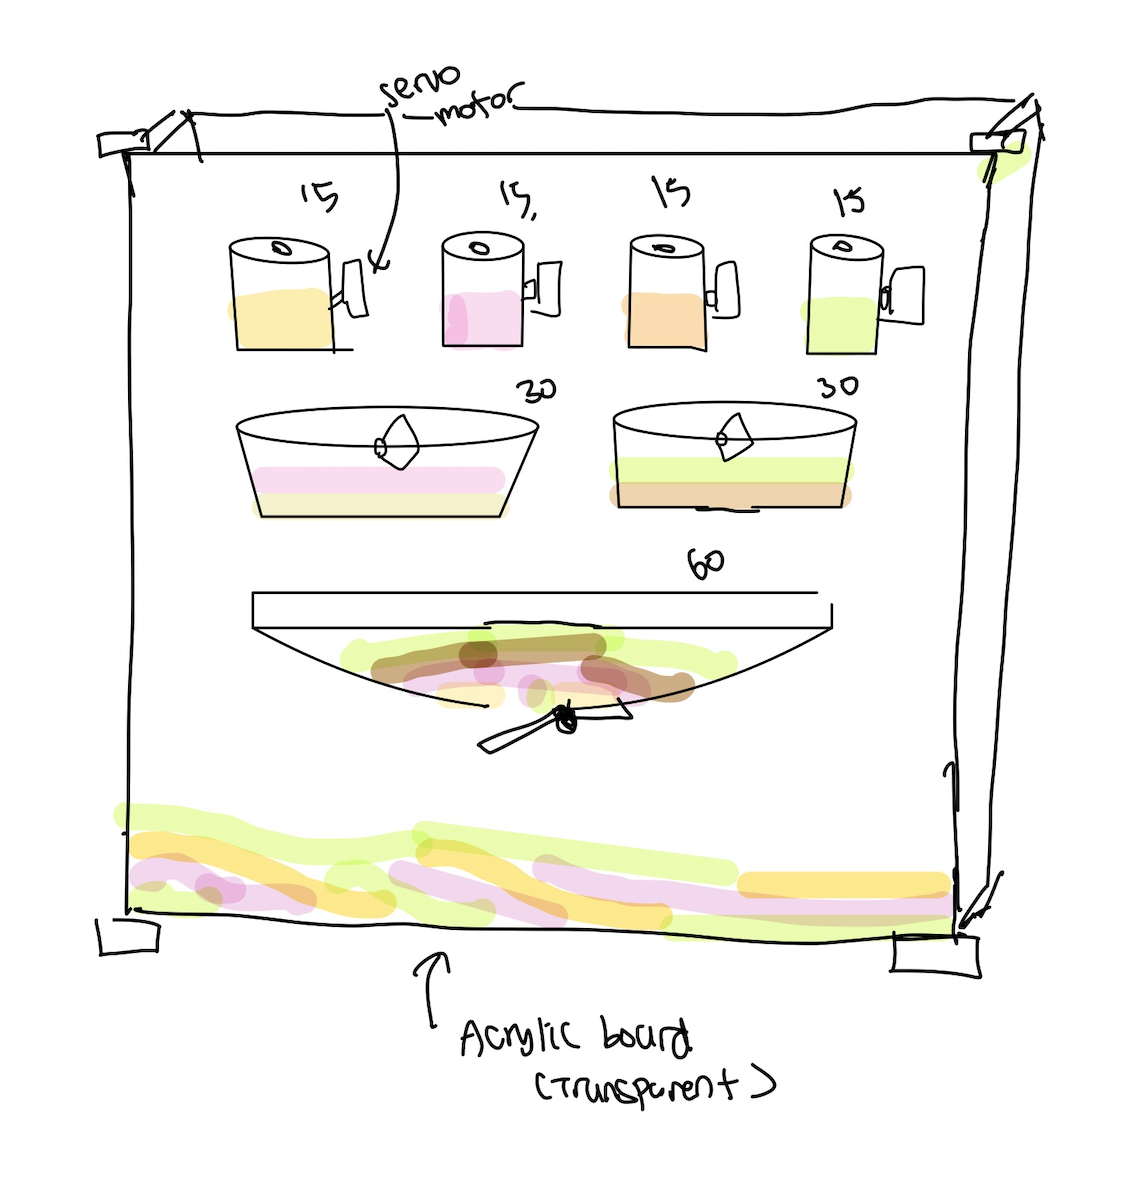 servo
motor
15 15, 15 15
30 30
60
Acrylic board
(Transparent)